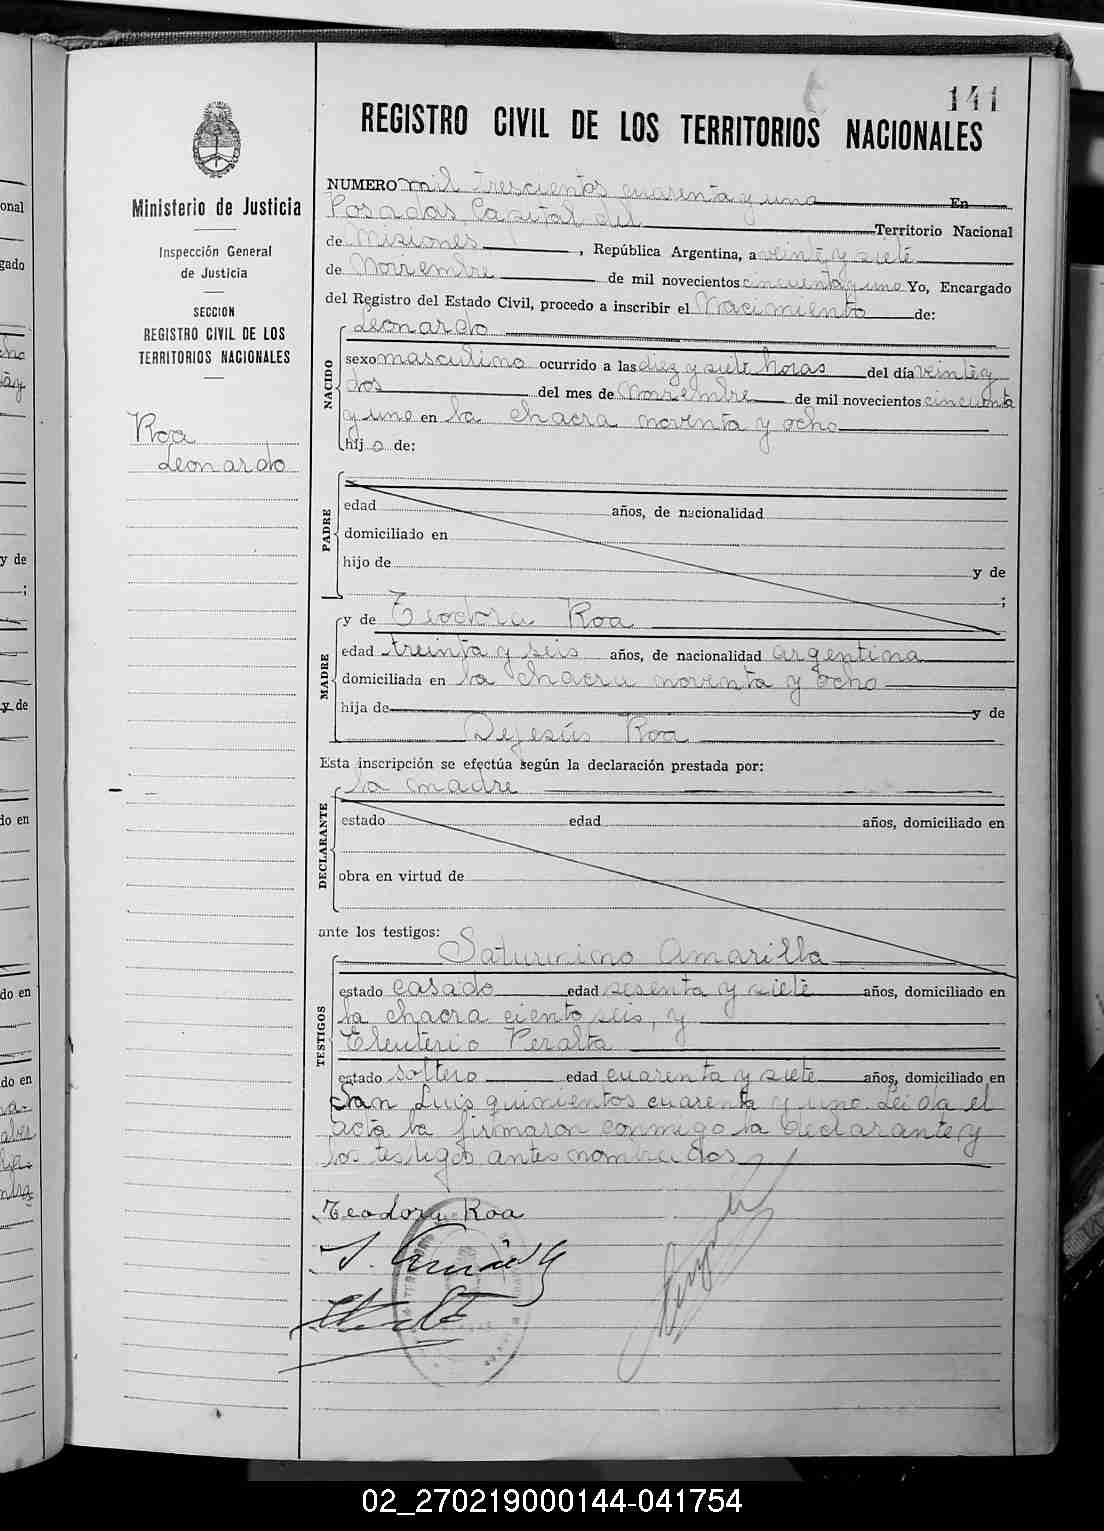 141
REGISTRO CIVIL DE LOS TERRITORIOS NACIONALES
Ministerio de Justicia
Inspección General
de Justicia
SECCION
REGISTRO CIVIL DE LOS
TERRITORIOS NACIONALES
Roa
Leonardo
NUMERO mil trescientos cuarenta y uno En
Posadas Capital del Territorio Nacional
de Misiones, República Argentina, a veinte y siete
de Noviembre de mil novecientos cincuenta y uno Yo, Encargado
del Registro del Estado Civil, procedo a inscribir el Nacimiento de:
NACIDO
Leonardo
sexo masculino ocurrido a las diez y siete horas del día veinte y
dos del mes de Noviembre de mil novecientos cincuenta
y uno en la chacra noventa y ocho
hijo de:
PADRE
edad años, de nacionalidad
domiciliado en
hijo de y de
;
MADRE
y de Teodora Roa
edad treinta y seis años, de nacionalidad argentina
domiciliada en la chacra noventa y ocho
hija de y de
Dejesús Roa
Esta inscripción se efectúa según la declaración prestada por:
la madre
DECLARANTE
estado edad años, domiciliado en
obra en virtud de
ante los testigos:
TESTIGOS
Saturnino Amarilla
estado casado edad sesenta y siete años, domiciliado en
la chacra ciento seis, y
Eleuterio Peralta
estado soltero edad cuarenta y siete años, domiciliado en
San Luis quinientos cuarenta y uno. Leida el
acta la firmaron conmigo la declarante y
los testigos antes nombrados
Teodora Roa
onal
gado
y de
;
y de
do en
do en
do en
02_270219000144-041754